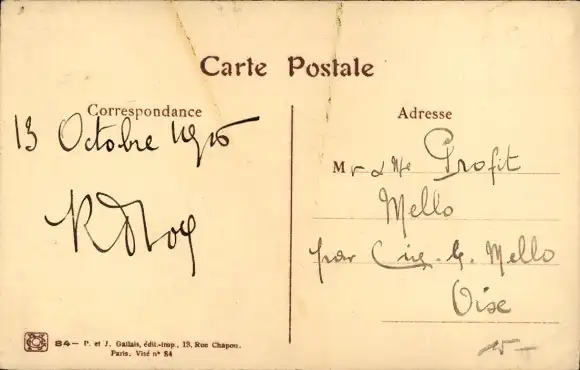 Carte Postale
Correspondance
13 Octobre 1915
Adresse
Mr & Me Profit
Mello
par Cire-l-Mello
Oise
84 — P. et J. Gallais, édit.-imp., 13, Rue Chapon,
Paris. Visé nº 84
15-